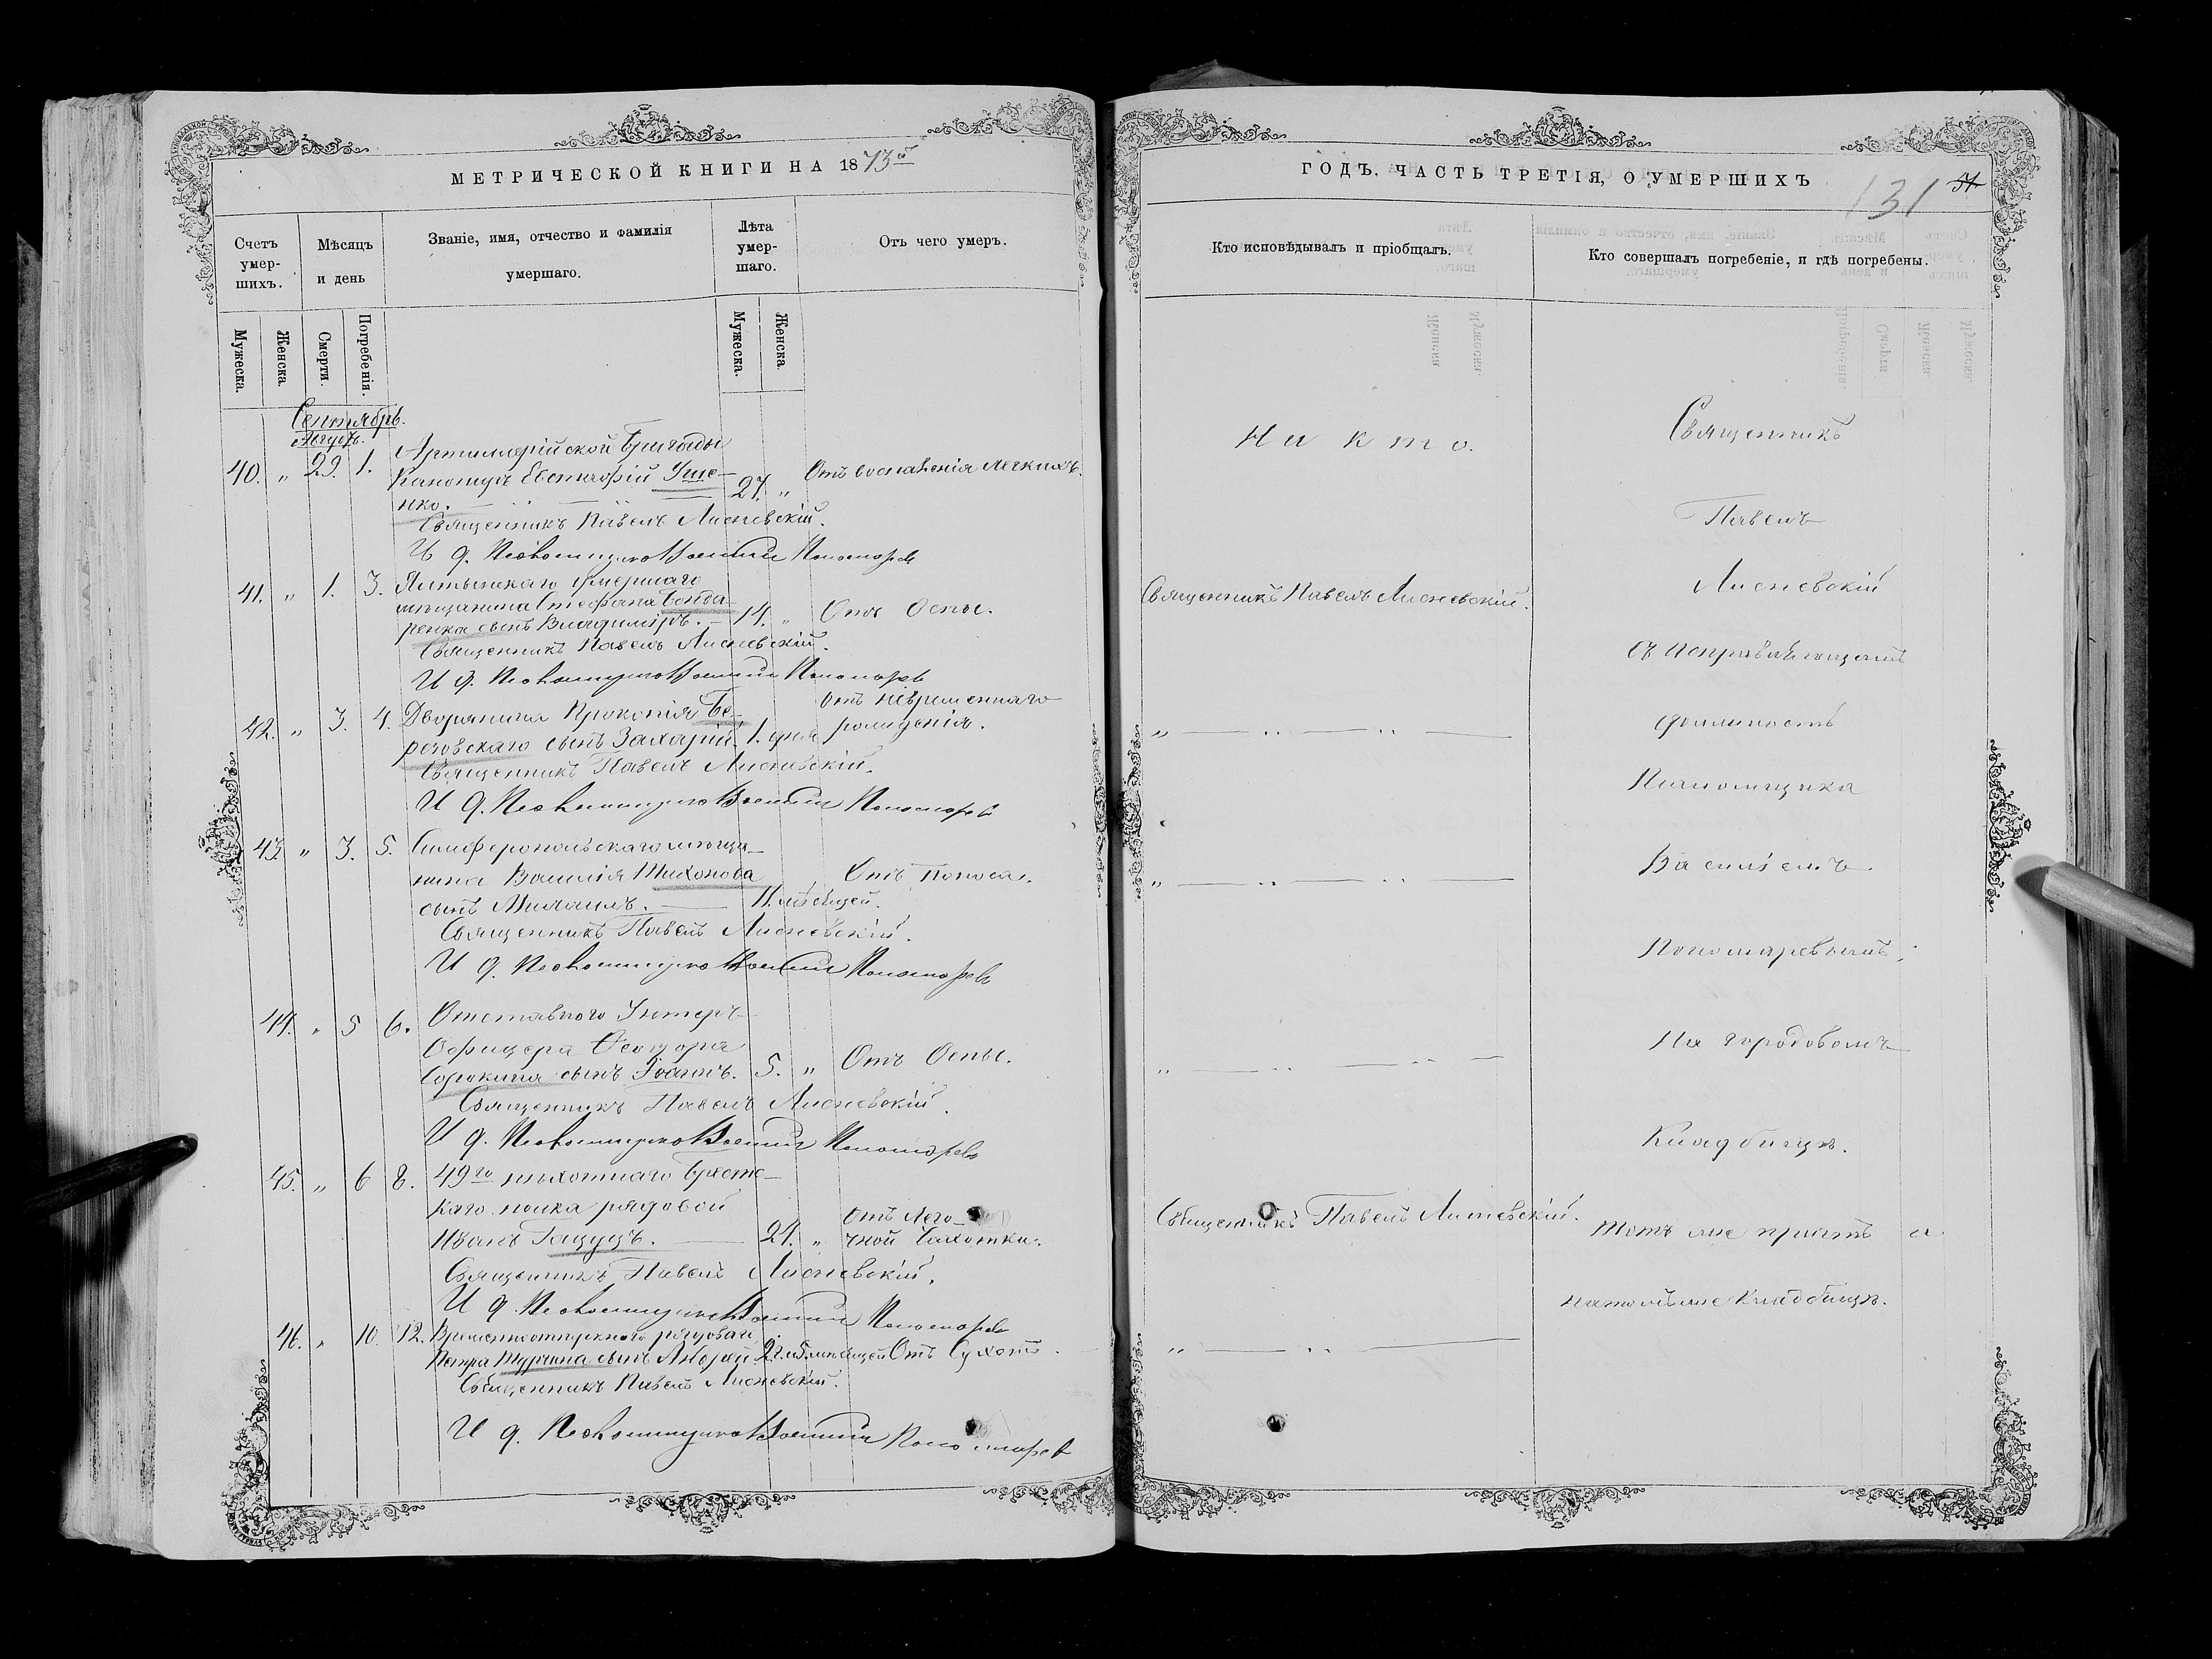 МЕТРИЧЕСКОЙ КНИГИ НА 1873й
Счетъ умер-шихъ.
Мѣсяцъ и день
Званіе, имя, отчество и фамилія умершаго.
Лѣта умер-шаго.
Отъ чего умеръ.
Мужеска.
Женска.
Смерти.
Погребенія.
Мужеска.
Женска.
Сентябрь.
Августъ.
40. „ 29. 1. Артиллерійской бригады
Евстафій Уше- 27. „ Отъ воспаленія легкихъ.
нко.
Священникъ Павелъ Лисневскій.
И д. Псаломщика Василій Пономаревъ
41. „ 1. 3. Ялтинскаго умершаго
мѣщанина Стефана Бонда-
ренка сынъ Владиміръ. 14. „ Отъ Оспы.
Священникъ Павелъ Лисневскій.
И д. Псаломщика Василій Пономаревъ
42. „ 3. 4. Дворянина Прокопія Бе-
резовскаго сынъ Захарій. 1. дня отъ невременнаго
рожденія.
Священникъ Павелъ Лисневскій.
И д. Псаломщика Василій Пономаревъ
43. „ 3. 5. Симферопольскаго мѣща-
нина Василія Тихонова Отъ поноса.
сынъ Михаилъ. 11. мѣсяцей.
Священникъ Павелъ Лисневскій.
И д. Псаломщика Василій Пономаревъ
44. „ 5 6. Отставного Унтеръ
Офицера Ѳеодора
Сорокина сынъ Іоаннъ. 5. „ Отъ Оспы.
Священникъ Павелъ Лисневскій.
И д. Псаломщика Василій Пономаревъ
45. „ 6 8. 49го пѣхотнаго Брестс-
каго полка рядовой
Иванъ Гацуцъ. 24. „ отъ Лего-
чной Чахотки.
Священникъ Павелъ Лисневскій.
И д. Псаломщика Василій Пономаревъ
46. „ 10. 12. Временноотпускного рядоваго
Петра Турчина сынъ Андрей 2. г. и 5. мѣсяцей Отъ Сухотъ.
Священникъ Павелъ Лисневскій.
И д. Псаломщика Василій Пономаревъ
ГОДЪ. ЧАСТЬ ТРЕТІЯ, О УМЕРШИХЪ
131
51
Кто исповѣдывалъ и пріобщалъ.
Кто совершалъ погребеніе, и гдѣ погребены.
Никто.
Священникъ Павелъ Лисневскій.
„ — „ — „ —
„ — „ — „ —
„ — „ — „ —
Священникъ Павелъ Лисневскій.
„ — „ —
Священникъ
Павелъ
Лисневскій
съ исправляющимъ
должность
Псаломщика
Василіемъ
Пономаревымъ;
На городовомъ
Кладбищѣ.
Тотъ же причтъ и
на томъ же Кладбищѣ.